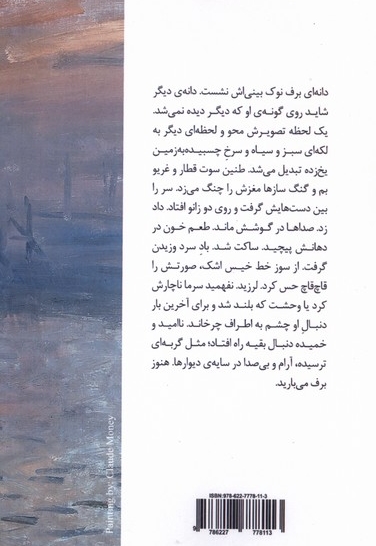 دانه‌ای برف نوک بینی‌اش نشست. دانه‌ی دیگر
شاید روی گونه‌ی او که دیگر دیده نمی‌شد.
یک لحظه تصویرش محو و لحظه‌ای دیگر به
لکه‌ای سبز و سیاه و سرخ چسبیده‌به‌زمین
یخ‌زده تبدیل می‌شد. طنین سوت قطار و غریو
بم و گنگ سازها مغزش را چنگ می‌زد. سر را
بین دست‌هایش گرفت و روی دو زانو افتاد. داد
زد. صداها در گوشش ماند. طعم خون در
دهانش پیچید. ساکت شد. بادِ سرد وزیدن
گرفت. از سوز خط خیس اشک، صورتش را
قاچ‌قاچ حس کرد. لرزید. نفهمید سرما ناچارش
کرد یا وحشت که بلند شد و برای آخرین بار
دنبالِ او چشم به اطراف چرخاند. ناامید و
خمیده دنبال بقیه راه افتاد؛ مثل گربه‌ای
ترسیده، آرام و بی‌صدا در سایه‌ی دیوارها. هنوز
برف می‌بارید.
Painting by: Claude Money
ISBN:978-622-7778-11-3
9 786227 778113